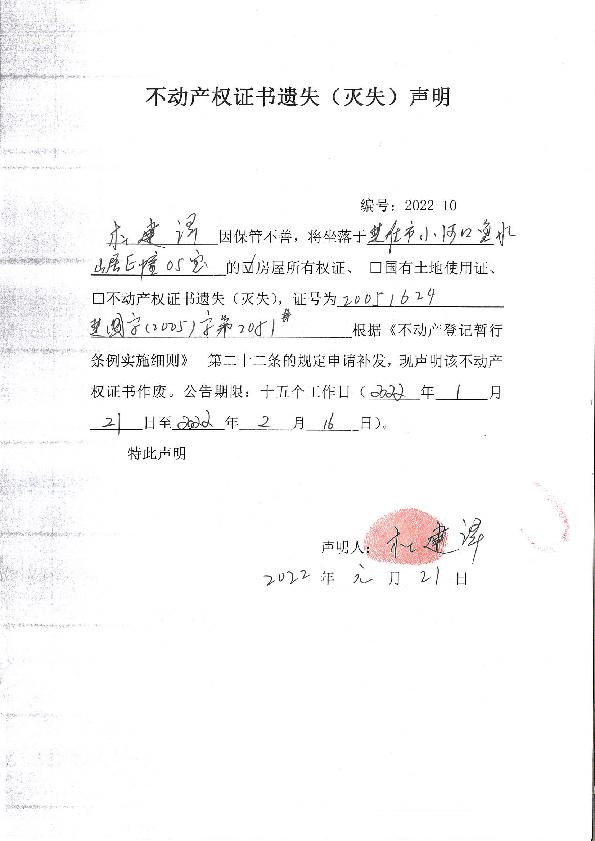 不动产权证书遗失（灭失）声明
编号：2022-10
杜建译 因保管不善，将坐落于楚雄市小河口鱼水
山居E幢05室 的☑房屋所有权证、□国有土地使用证、
□不动产权证书遗失（灭失），证号为20051624
楚国字(2005)字第2051#根据《不动产登记暂行
条例实施细则》 第二十二条的规定申请补发，现声明该不动产
权证书作废。公告期限：十五个工作日（2022 年 1 月
21 日至2022 年 2 月 16 日）。
特此声明
声明人：杜建译
2022 年 元 月 21 日